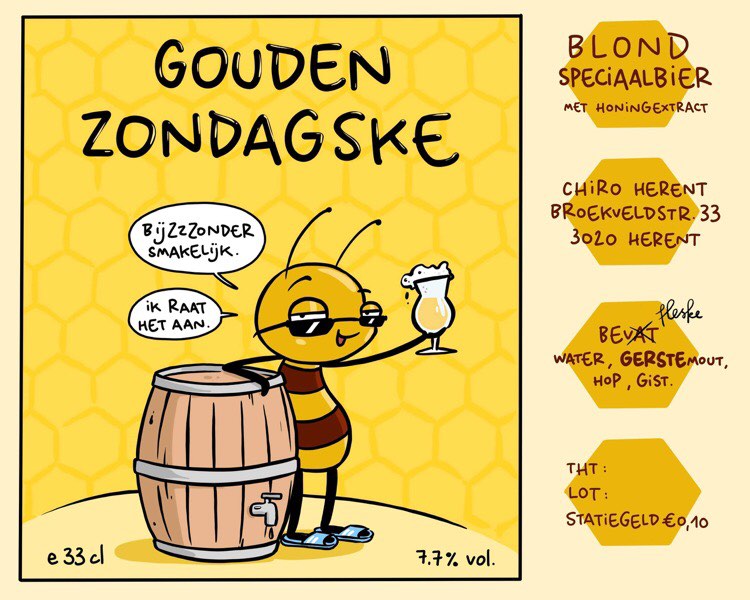 GOUDEN
ZONDAGSKE
BijZzZONDER
SMAKELIJK.
iK RAAT
HET AAN.
e 33 cl
7.7% vol.
BLOND
SPECiAALBiER
MET HONINGEXTRACT
CHiRO HERENT
BROEKVELDSTR. 33
3020 HERENT
fleske
BEVAT
WATER, GERSTEMOUT,
HOP, GiST.
THT:
LOT:
STATiEGELD €0,10